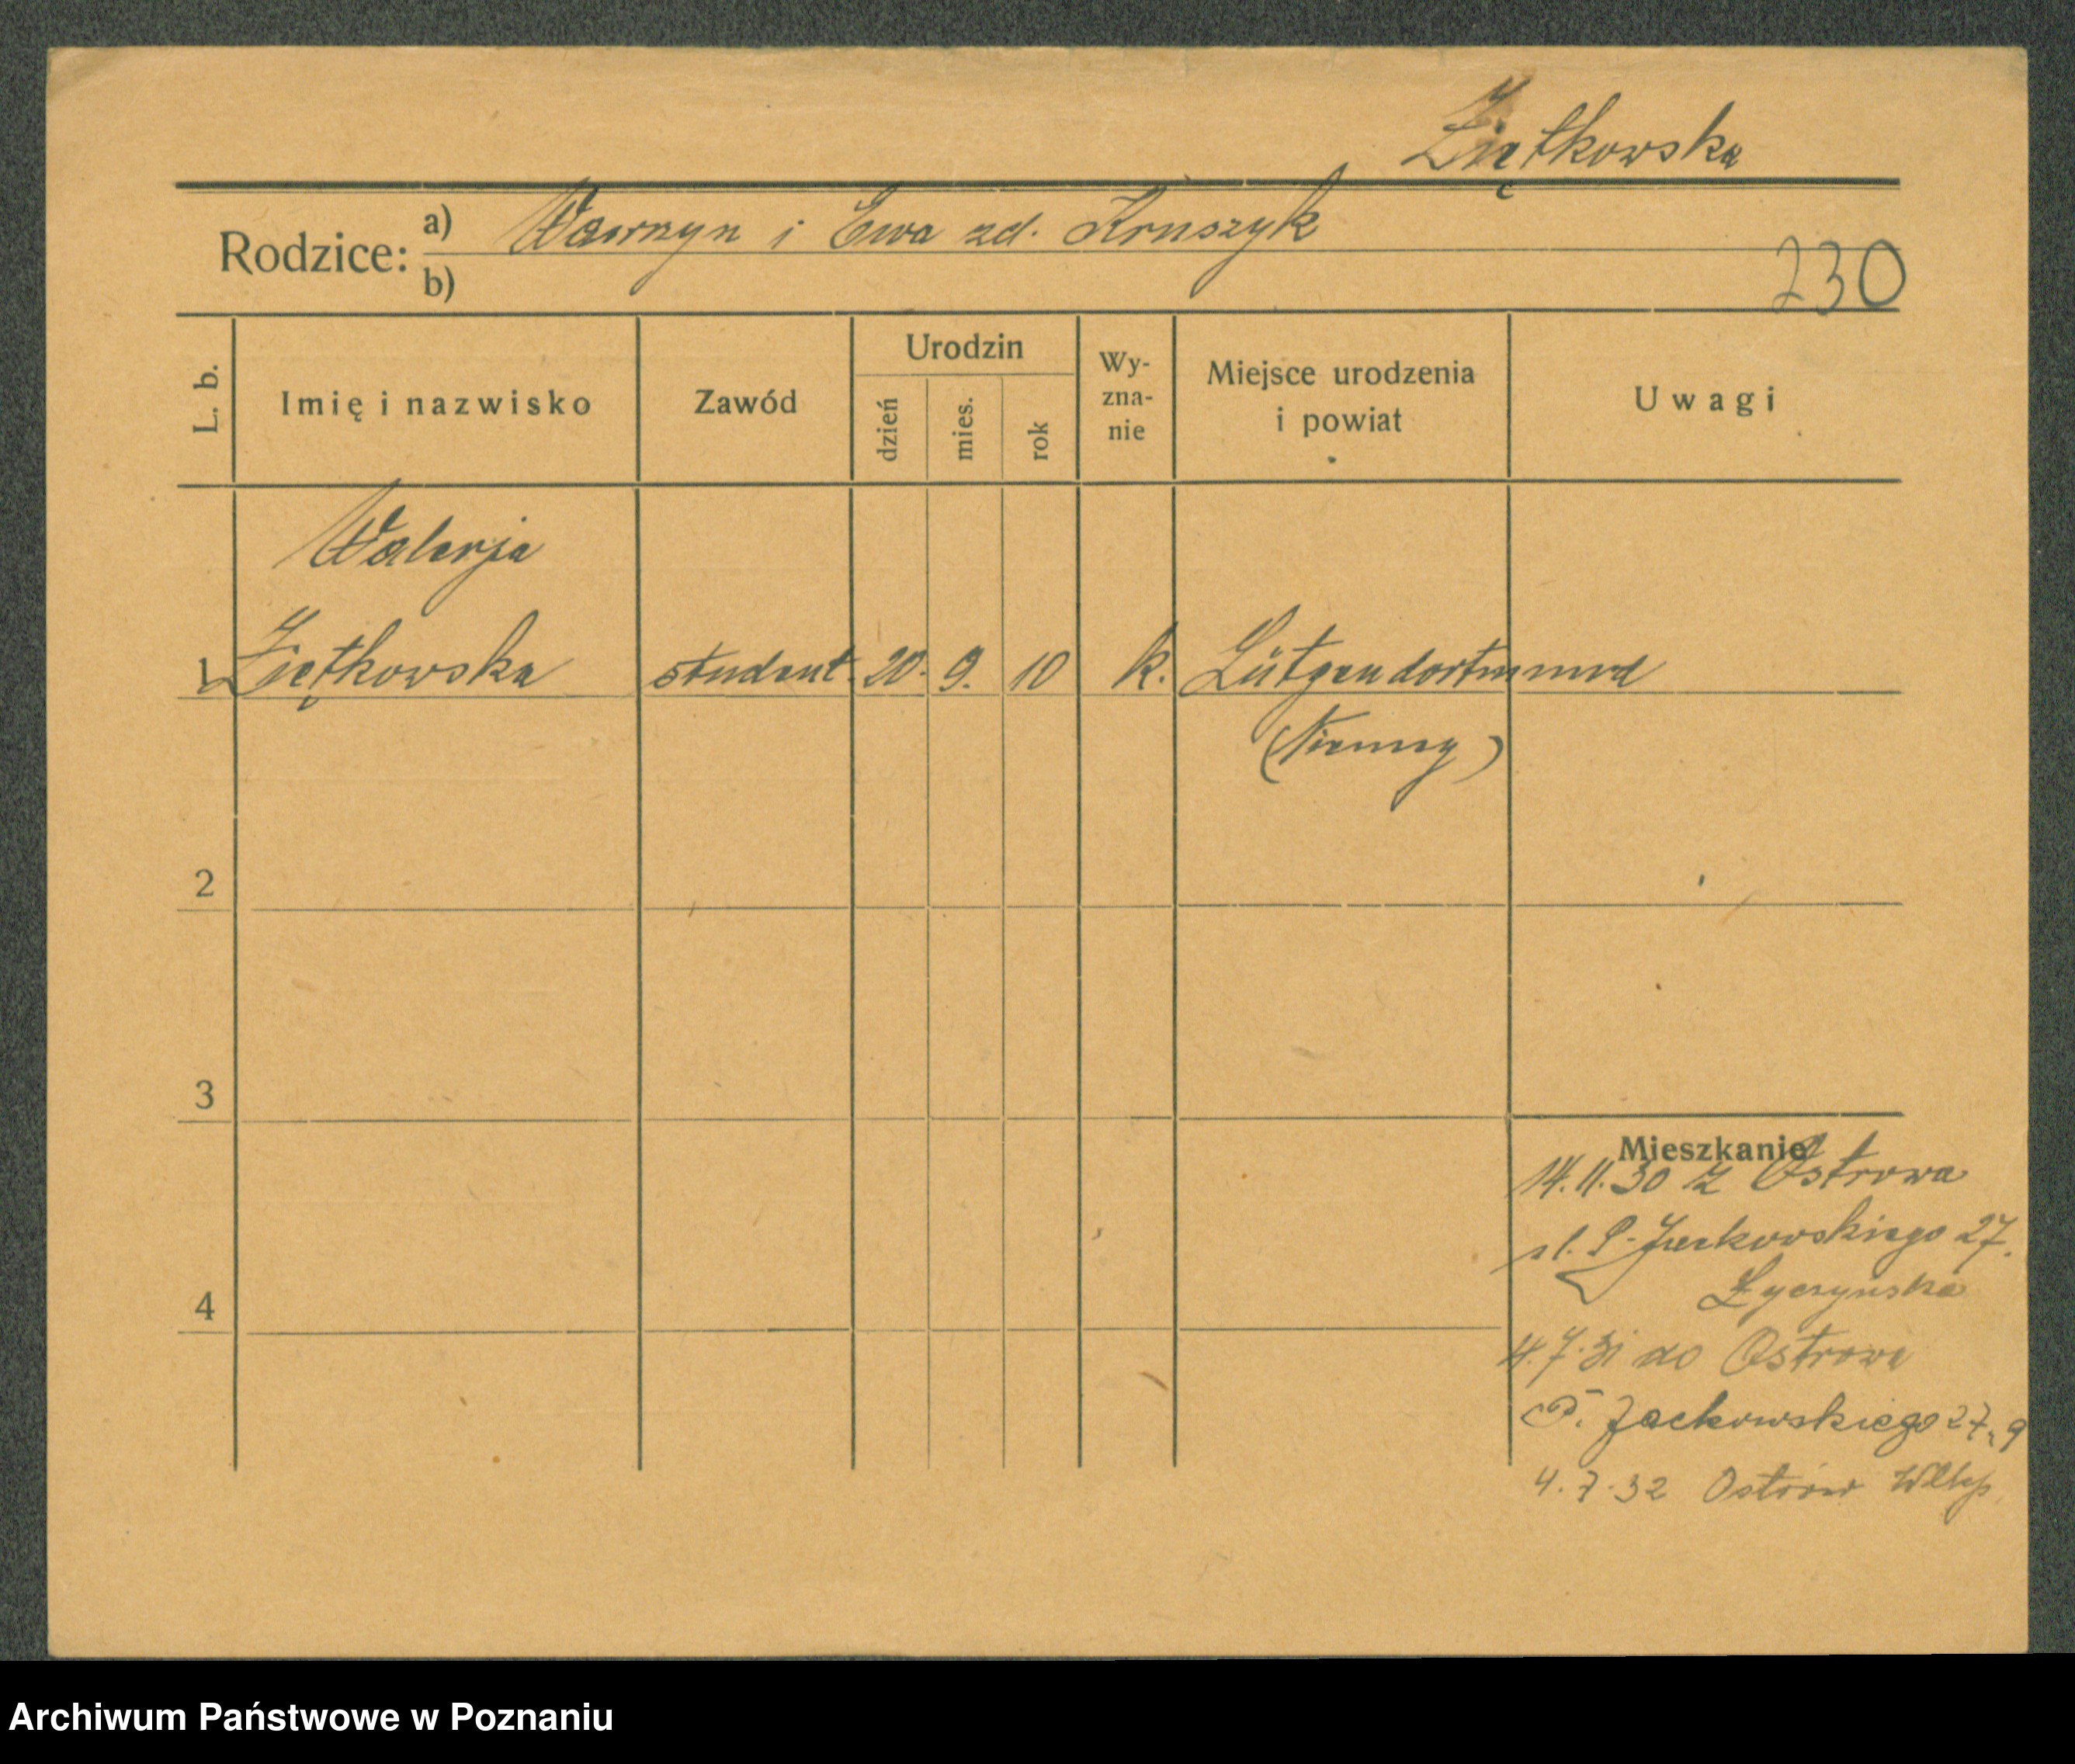 Ziętkowska
Rodzice: a) Wawrzyn i Ewa zd. Kruszyk
b)
230
L. b.
Imię i nazwisko
Zawód
Urodzin
dzień
mies.
rok
Wy-
zna-
nie
Miejsce urodzenia
i powiat
Uwagi
Walerja
1 Ziętkowska student. 20. 9. 10 k. Lütgendortmund
(Niemcy)
2
3
4
Mieszkanie
14.11.30 z Ostrowa
P. Jackowskiego 27.
Łyczyńska
4.7.31 do Ostrowa
P. Jackowskiego 27, 9
4.7.32 Ostrów Wlkp.
Archiwum Państwowe w Poznaniu